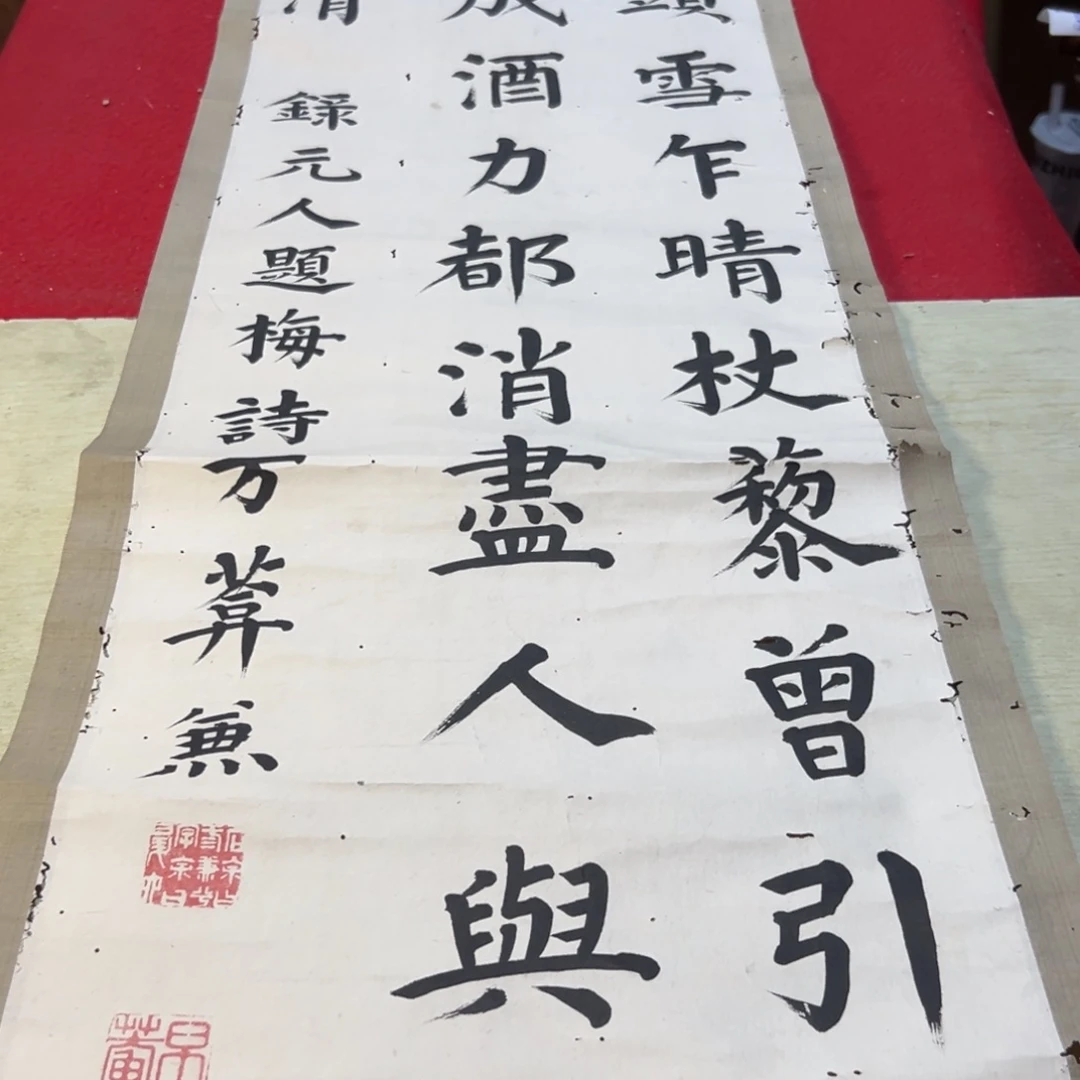 頭雪乍晴杖藜曾引
成酒力都消盡人與
清 錄元人題梅詩万葊兼